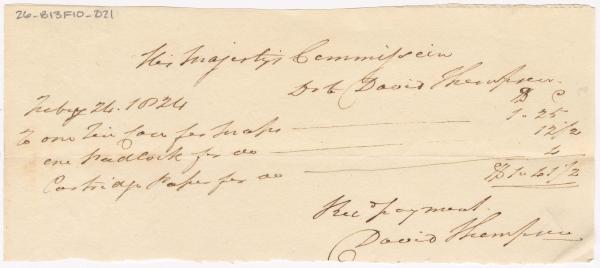 26-B13F10-D21
His Majestys Commission
Dr to David Thompson.
$ C
Feby 24. 1824
To one Tin Case for maps 1. 25
one Padlock for do 12 1/2
Cartridge Paper for do 4
$ 1. 41 1/2
Rec'd payment.
David Thompson